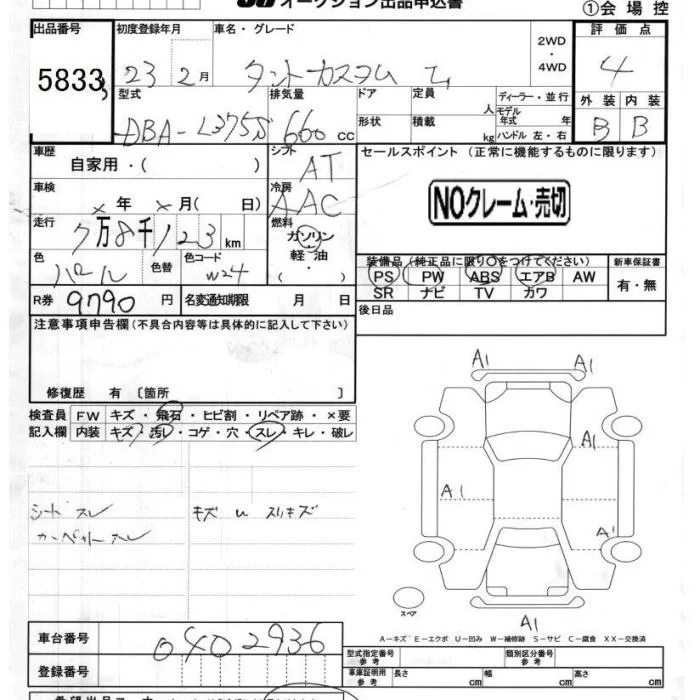 オークション出品申込書
①会場控
出品番号 初度登録年月 車名・グレード 2WD・4WD 評価点
5833 23 2月 タントカスタム 4
型式 排気量 ドア 定員 人 ディーラー・並行 外装 内装
DBA-L375S 660 CC 形状 積載 kg モデル年式 年 ハンドル 左・右 B B
車歴 シフト セールスポイント (正常に機能するものに限ります)
自家用・( ) AT
車検 冷房 NOクレーム・売切
×年 ×月( 日) AAC
走行 燃料
7万8千123km ガソリン
軽・油
・( )
色 色替 色コード 装備品(純正品に限り○をつけてください) 新車保証書
パール W24 PS PW ABS エアB AW 有・無
SR ナビ TV カワ
R券 9790円 名変通知期限 月 日 後日品
注意事項申告欄(不具合内容等は具体的に記入して下さい)
修復歴 有〔箇所 〕
検査員 FW キズ・飛石・ヒビ割・リペア跡・×要
記入欄 内装 キズ・汚レ・コゲ・穴・スレ・キレ・破レ
シートスレ キズ u スリキズ
カーペットスレ
A1 A1
A1
A1
A1
スペア
A1
A-キズ E-エクボ U-凹み W-補修跡 S-サビ C-腐食 XX-交換済
車台番号 0402936
登録番号
型式指定番号 参考 類別区分番号 参考
車庫証明用 参考 長さ cm 幅 cm 高さ cm